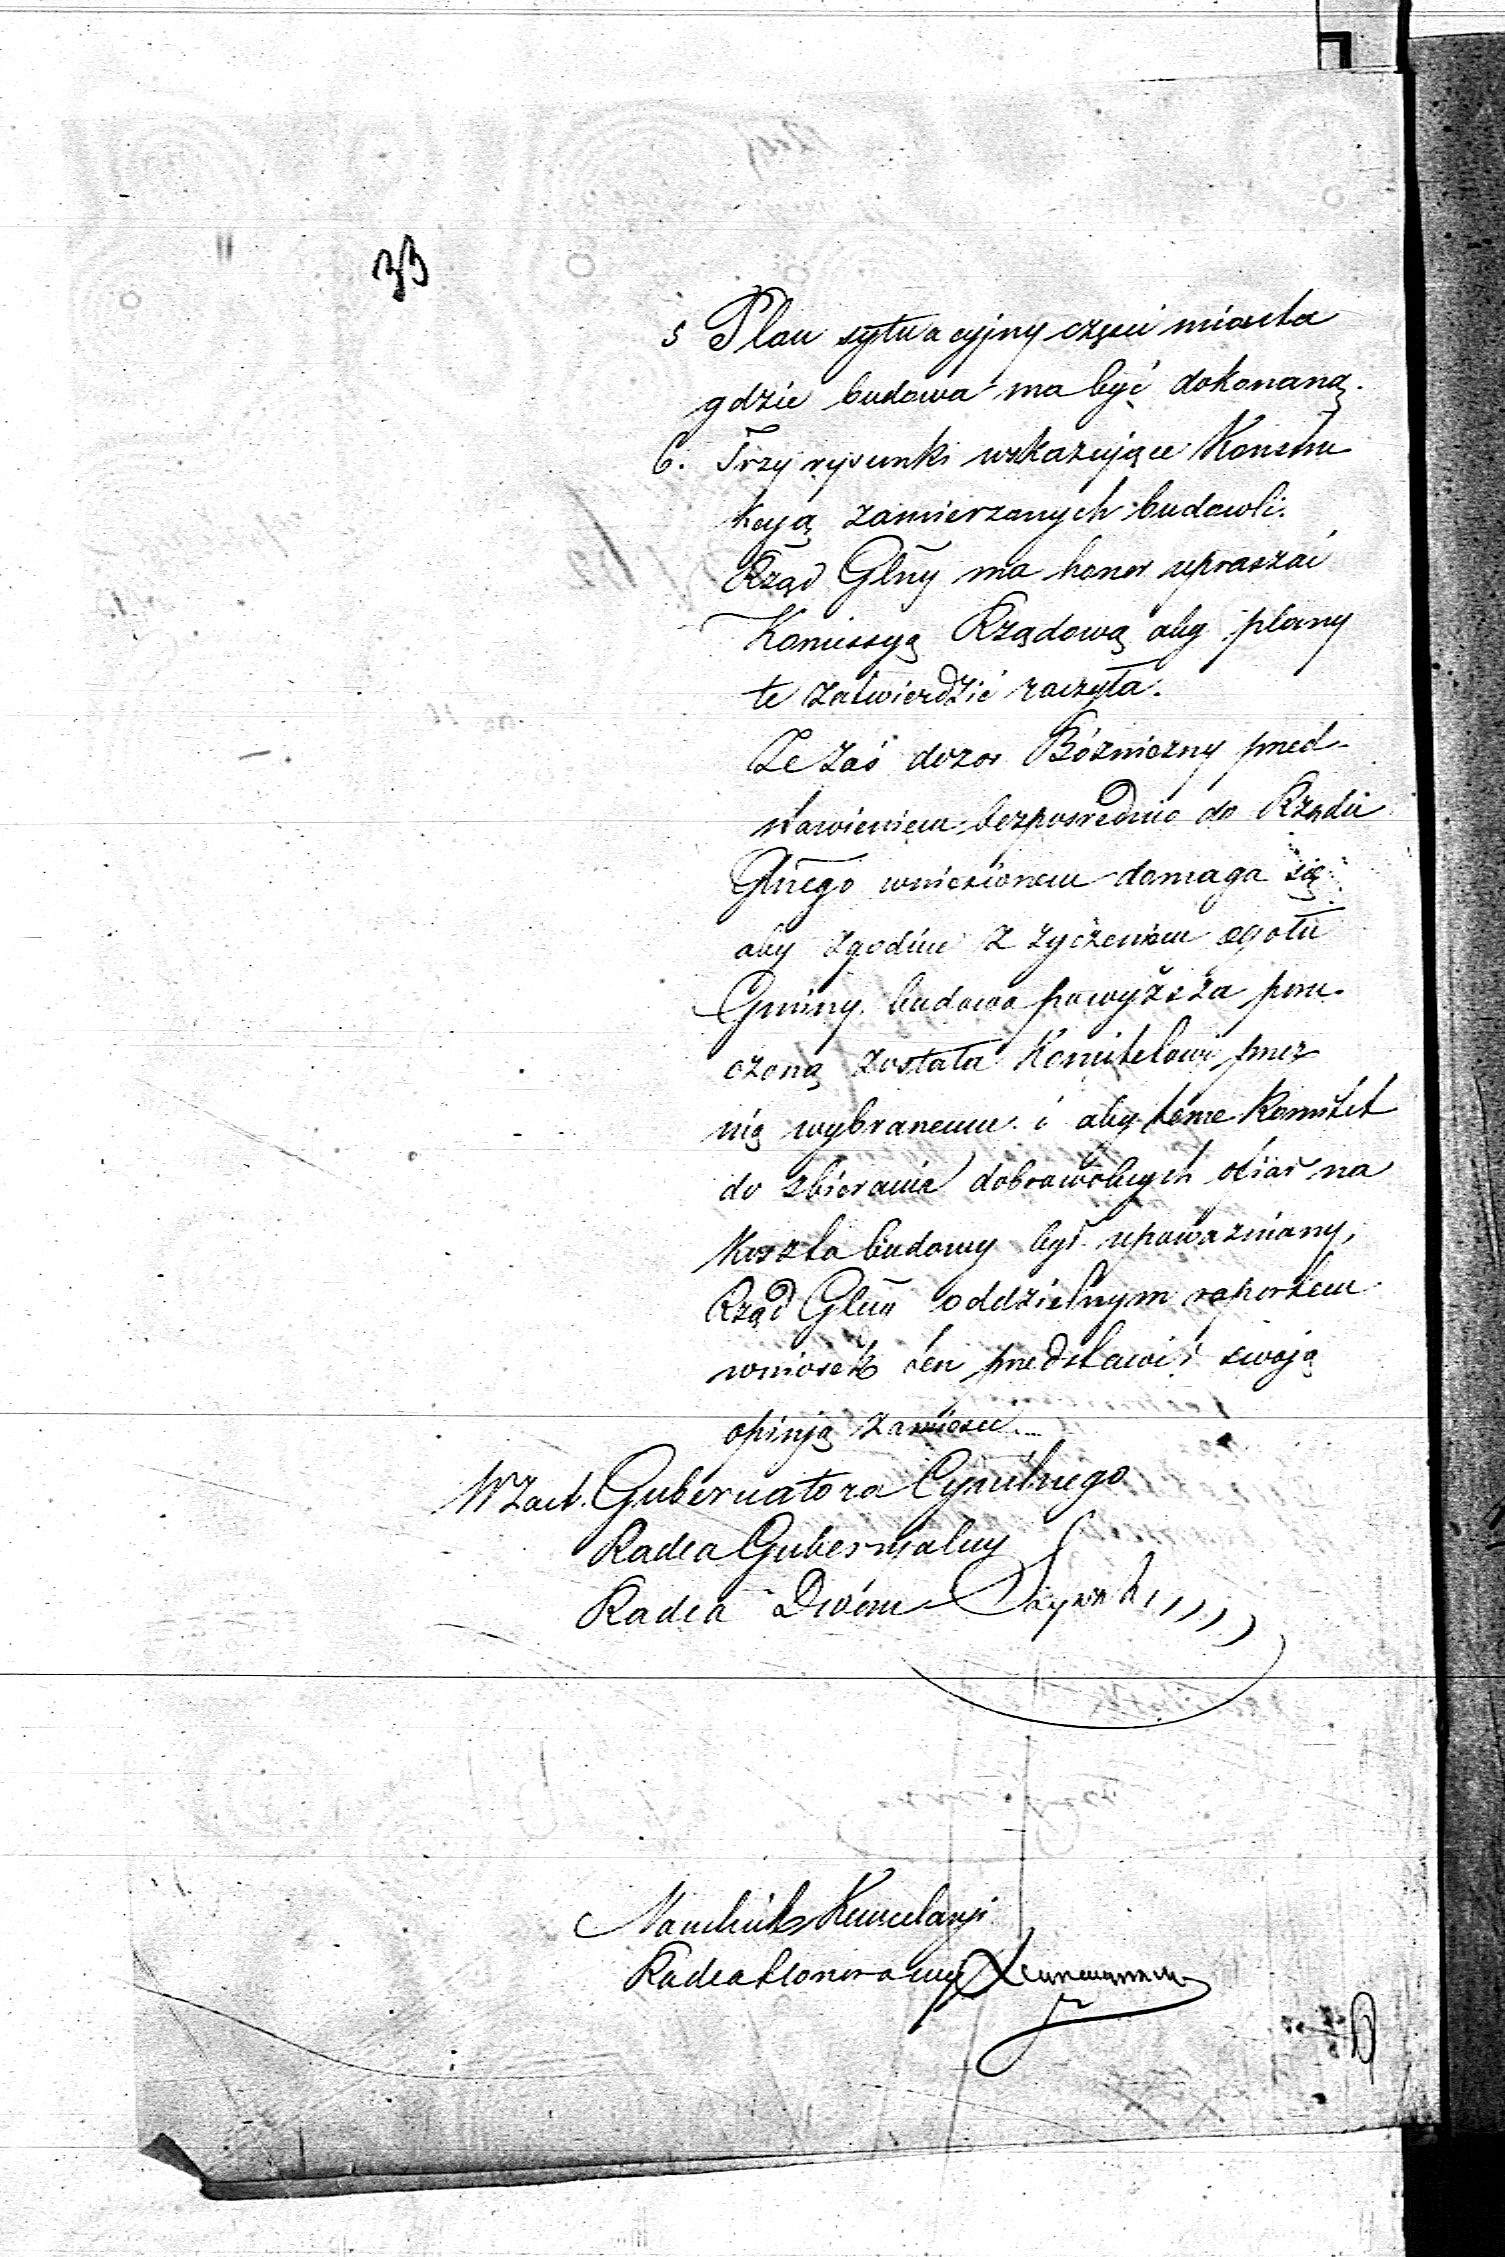 33
5 Plan sytuacyjny części miasta
gdzie budowa ma być dokonaną.
6. Trzy rysunki wskazujące Konstru
kcyą zamierzonych budowli.
Rząd Glny ma honor upraszać
Komissyą Rządową aby plany
te zatwierdzić raczyła.
Że zaś dozor Bóżniczny przed-
stawieniem bezpośrednio do Rządu
Glnego wniesionem domaga się
aby zgodnie z życzeniem ogołu
Gminy budowa powyższa poru-
czoną została Komitetowi przez
nią wybranemu i aby tenże Komitet
do zbierania dobrowolnych ofiar na
koszta budowy był upoważniony,
Rząd Glny oddzielnym raportem
wniosek ten przedstawi i swoją
opinją zamieści.
W Zast. Gubernatora Cywilnego
Radca Gubernialny
Radca Dworu
Naczelnik Kancelaryi
Radca Honorowy